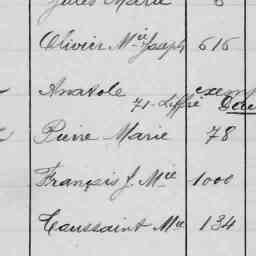 Jules Marie 6
Olivier Mie Joseph 616
Anatole exemp
71 - Liffré
Pierre Marie 78
François J. Mie 1000
Toussaint Mie 134